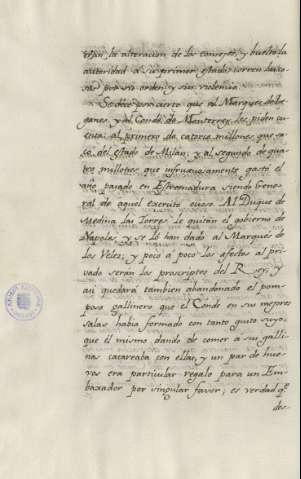 la alteracion de la consejos, y buelto la
autoridad a su primer estado corren
por su orden, y sin violencia
Se dice por cierto que al Marques de Le-
ganes, y al Conde de Monterrey les piden cu-
enta: al primero de catorce millones que sa-
có del estado de Milan, y al segundo de qua-
tro millones que infructuosamente gastó el
año pasado en Estremadura siendo Gene-
ral de aquel exercito ocioso. Al Duque de
Medina las Torres le quitan el gobierno de
Napoles y se lo han dado al Marques de
los Velez; y poco à poco los afectos al pri-
vado serán los proscriptos del Rey; y
asi quedará tambien abandonado el pom-
poso gallinero que el Conde en sus mejores
salas habia formado con tanto gusto suyo,
que él mismo dando de comer a sus galli-
nas cacareaba con ellas, y un par de hue-
vos era particular regalo para un Em-
baxador por singular favor; es verdad qᵉ
des-